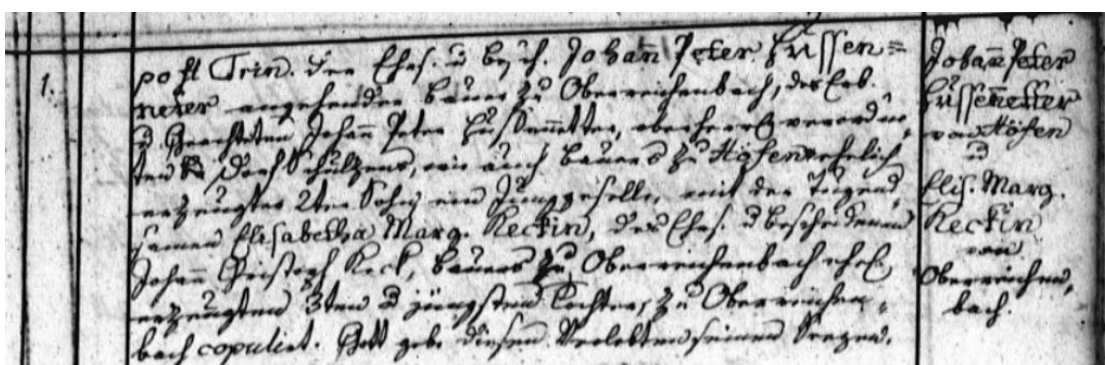 1.
post Trin. der Ehrs. u besch. Johan̄ Peter Hussen=
netter angehender Bauer zu Oberreichenbach, des Erb.
u Geachteten Johan̄ Peter Hussennetter, verordn,
ten Dorf Schulzens, wie auch Bauers zu Höfen ehelich
erzeugter 2ter Sohn ein Junggeselle, mit der Tugend,
samen Elisabetha Marg. Keckin, des Ehrs. u bescheidenen
Johan̄ Christoph Keck, Bauers zu Oberreichenbach ehel
erzeugten 3ten u jüngsten Tochter, zu Oberreichen,
bach copulirt. Gott gebe diesen Verlobten seinen Seegen.
Johan̄ Peter
Hussen̄etter
von Höfen
u
Elis. Marg.
Keckin
von
Oberreichen,
bach.